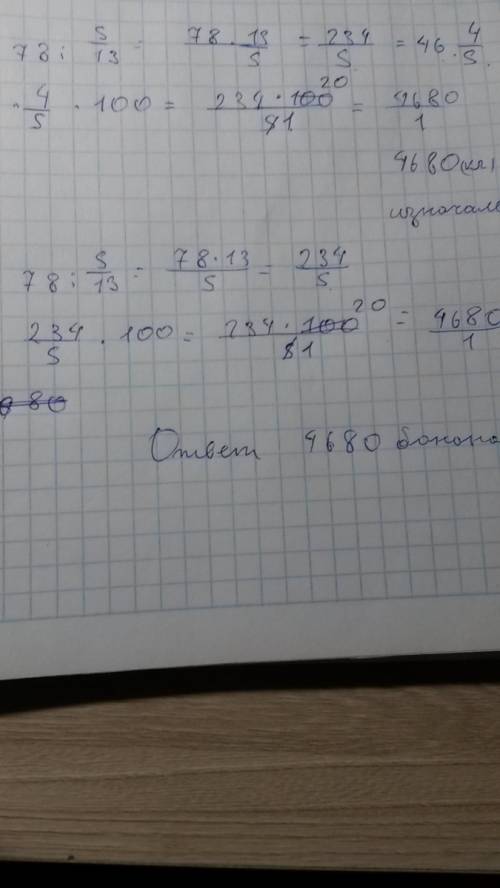 78 : 5/13 = 78 · 13/5 = 234/5 = 46 4/5
· 4/5 · 100 = 234 · 100 20/51 = 4680/1
4680 (кг)
изначал
78 : 5/13 = 78 · 13/5 = 234/5
234/5 · 100 = 234 · 100 20/51 = 4680/1
80
Ответ 4680 банана